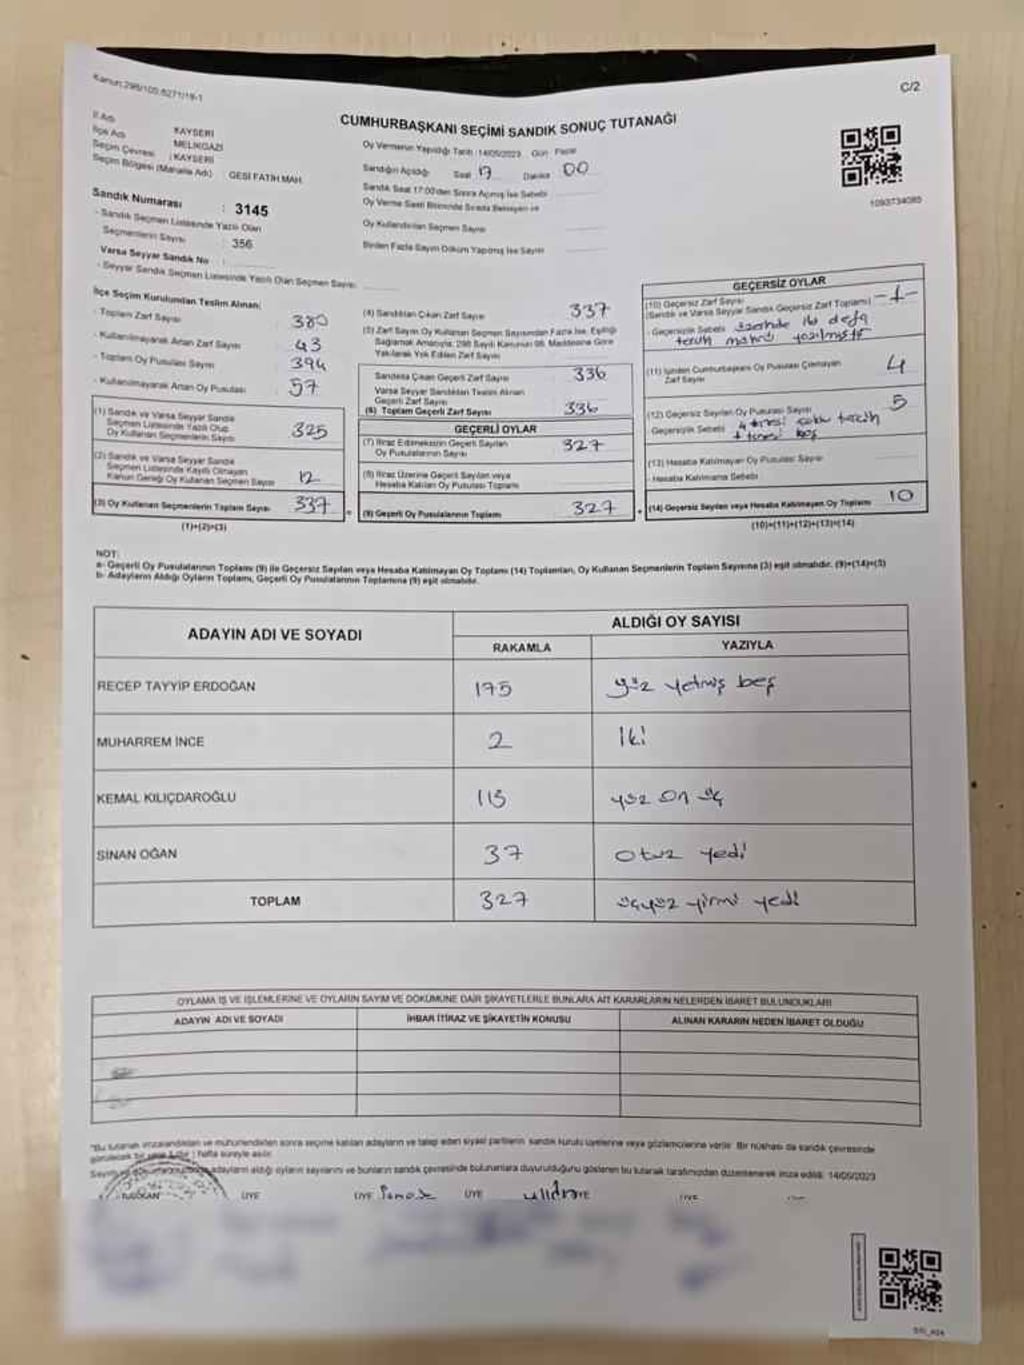 Kanun:298/105,6271/19-1
C/2
CUMHURBAŞKANI SEÇİMİ SANDIK SONUÇ TUTANAĞI
İl Adı : KAYSERİ
İlçe Adı : MELİKGAZİ
Seçim Çevresi : KAYSERİ
Seçim Bölgesi (Mahalle Adı) : GESİ FATİH MAH.
Sandık Numarası : 3145
- Sandık Seçmen Listesinde Yazılı Olan
Seçmenlerin Sayısı : 356
Varsa Seyyar Sandık No :
- Seyyar Sandık Seçmen Listesinde Yazılı Olan Seçmen Sayısı:
Oy Vermenin Yapıldığı Tarih :14/05/2023 Gün : Pazar
Sandığın Açıldığı Saat 17 Dakika 00
Sandık Saat 17:00'den Sonra Açılmış İse Sebebi
Oy Verme Saati Bitiminde Sırada Bekleyen ve
Oy Kullandırılan Seçmen Sayısı
Birden Fazla Sayım Döküm Yapılmış İse Sayısı
1093734085
İlçe Seçim Kurulundan Teslim Alınan;
- Toplam Zarf Sayısı : 380
- Kullanılmayarak Artan Zarf Sayısı : 43
- Toplam Oy Pusulası Sayısı : 394
- Kullanılmayarak Artan Oy Pusulası : 57
(1) Sandık ve Varsa Seyyar Sandık
Seçmen Listesinde Yazılı Olup
Oy Kullanan Seçmenlerin Sayısı 325
(2) Sandık ve Varsa Seyyar Sandık
Seçmen Listesinde Kayıtlı Olmayan
Kanun Gereği Oy Kullanan Seçmen Sayısı 12
(3) Oy Kullanan Seçmenlerin Toplam Sayısı 337
(1)+(2)=(3)
(4) Sandıktan Çıkan Zarf Sayısı 337
(5) Zarf Sayısı Oy Kullanan Seçmen Sayısından Fazla İse, Eşitliği
Sağlamak Amacıyla; 298 Sayılı Kanunun 98. Maddesine Göre
Yakılarak Yok Edilen Zarf Sayısı
Sandıkta Çıkan Geçerli Zarf Sayısı 336
Varsa Seyyar Sandıktan Teslim Alınan
Geçerli Zarf Sayısı
(6) Toplam Geçerli Zarf Sayısı 336
GEÇERLİ OYLAR
(7) İtiraz Edilmeksizin Geçerli Sayılan
Oy Pusulalarının Sayısı 327
(8) İtiraz Üzerine Geçerli Sayılan veya
Hesaba Katılan Oy Pusulası Toplamı
(9) Geçerli Oy Pusulalarının Toplamı 327
GEÇERSİZ OYLAR
(10) Geçersiz Zarf Sayısı
(Sandık ve Varsa Seyyar Sandık Geçersiz Zarf Toplamı) -1-
- Geçersizlik Sebebi üzerinde iki defa
tercih mahrü yazılmıştır
(11) İçinden Cumhurbaşkanı Oy Pusulası Çıkmayan
Zarf Sayısı 4
(12) Geçersiz Sayılan Oy Pusulası Sayısı 5
Geçersizlik Sebebi 4 tanesi çoklu tercih
1 tanesi boş
(13) Hesaba Katılmayan Oy Pusulası Sayısı
- Hesaba Katılmama Sebebi
(14) Geçersiz Sayılan veya Hesaba Katılmayan Oy Toplamı 10
(10)+(11)+(12)+(13)=(14)
NOT:
a- Geçerli Oy Pusulalarının Toplamı (9) ile Geçersiz Sayılan veya Hesaba Katılmayan Oy Toplamı (14) Toplamları, Oy Kullanan Seçmenlerin Toplam Sayısına (3) eşit olmalıdır. (9)+(14)=(3)
b- Adayların Aldığı Oyların Toplamı, Geçerli Oy Pusulalarının Toplamına (9) eşit olmalıdır.
ADAYIN ADI VE SOYADI
ALDIĞI OY SAYISI
RAKAMLA YAZIYLA
RECEP TAYYİP ERDOĞAN 175 yüz yetmiş beş
MUHARREM İNCE 2 iki
KEMAL KILIÇDAROĞLU 113 yüz on üç
SİNAN OĞAN 37 otuz yedi
TOPLAM 327 üçyüz yirmi yedi
OYLAMA İŞ VE İŞLEMLERİNE VE OYLARIN SAYIM VE DÖKÜMÜNE DAİR ŞİKAYETLERLE BUNLARA AİT KARARLARIN NELERDEN İBARET BULUNDUKLARI
ADAYIN ADI VE SOYADI İHBAR İTİRAZ VE ŞİKAYETİN KONUSU ALINAN KARARIN NEDEN İBARET OLDUĞU
"Bu tutanak imzalandıktan ve mühürlendikten sonra seçime katılan adayların ve talep eden siyasi partilerin sandık kurulu üyelerine veya gözlemcilerine verilir. Bir nüshası da sandık çevresinde
görülecek bir yere 1 (bir) hafta süreyle asılır.
adayların aldığı oyların sayılarını ve bunların sandık çevresinde bulunanlara duyurulduğunu gösteren bu tutanak tarafımızdan düzenlenerek imza edildi. 14/05/2023
ÜYE ÜYE ÜYE